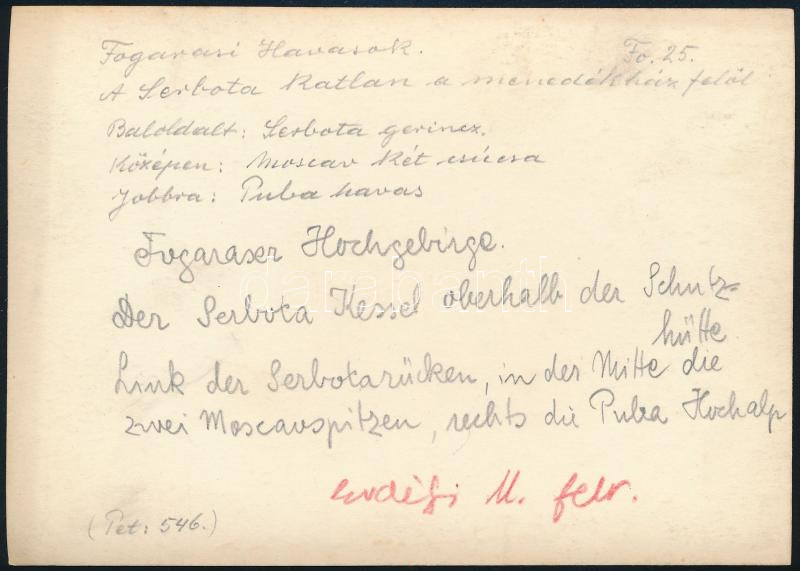 Fogarasi Havasok. Fo. 25.
A Serbota Katlan a menedékház felől
Baloldalt: Serbota gerincz.
Középen: Moscav két csúcsa
Jobbra: Puba havas
Fogaraser Hochgebirge.
Der Serbota Kessel oberhalb der Schutz=
hütte
Link der Serbotarücken, in der Mitte die
zwei Moscavspitzen, rechts die Puba Hochalp
Erdélyi M. felv.
(Pet: 546.)
darabanth